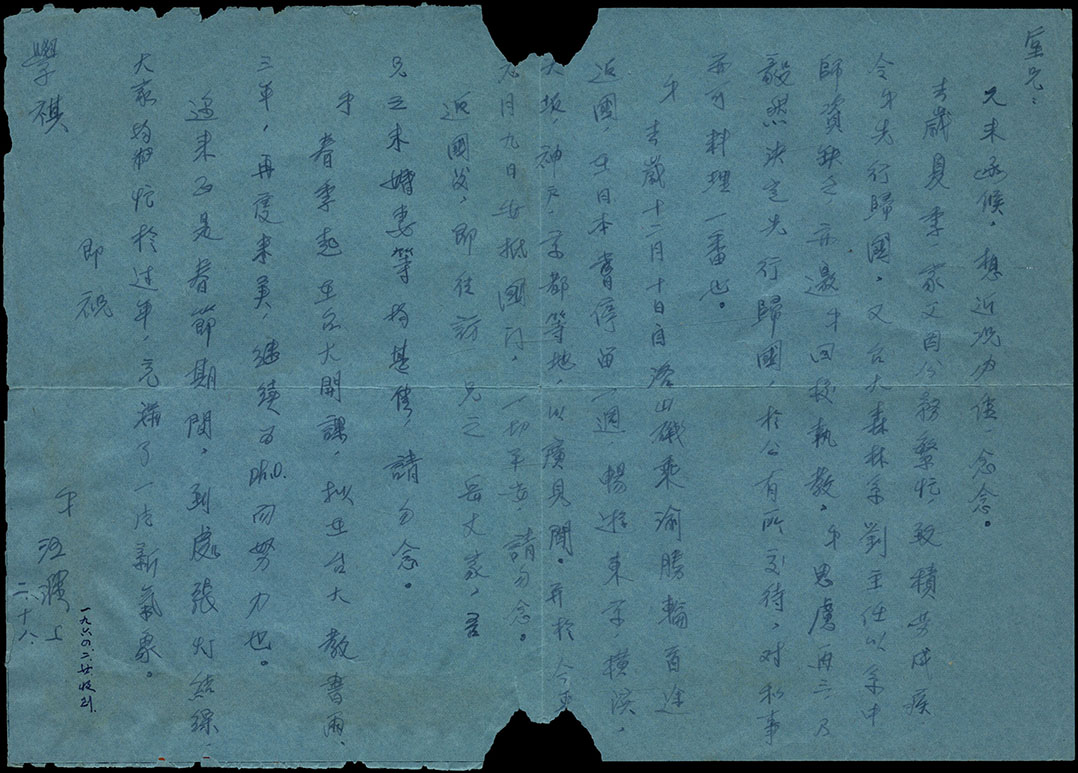 兄：
久未函候，想近况力佳，念念。
去歲夏季，家父因公務繁忙，致積勞成疾
令弟先行歸國，又台大森林系劉主任以系中
師資缺乏，亦邀弟回校執教，弟思慮再三，乃
毅然決定先行歸國，於公有所交待，對私事
亦可料理一番也。
弟去歲十二月十日自洛山磯乘渝勝輪首途
返國，在日本曾停留一週，暢遊東京，橫濱，
大坂，神户，京都等地，以廣見聞。并於今年
元月九日安抵國門，一切平安，請勿念。
返國後，即往訪 兄之 岳丈家，
兄之未婚妻等均甚佳，請勿念。
弟春季起在台大開課，拟在台大教書兩、
三年，再度來美，继续为ph.D.而努力也。
近來正是春節期間，到處張灯結綵，
大家均忙於过年，充满了一片新氣象。
即祝
學祺
弟 上
二、十八、
一九六四．二．廿收到．